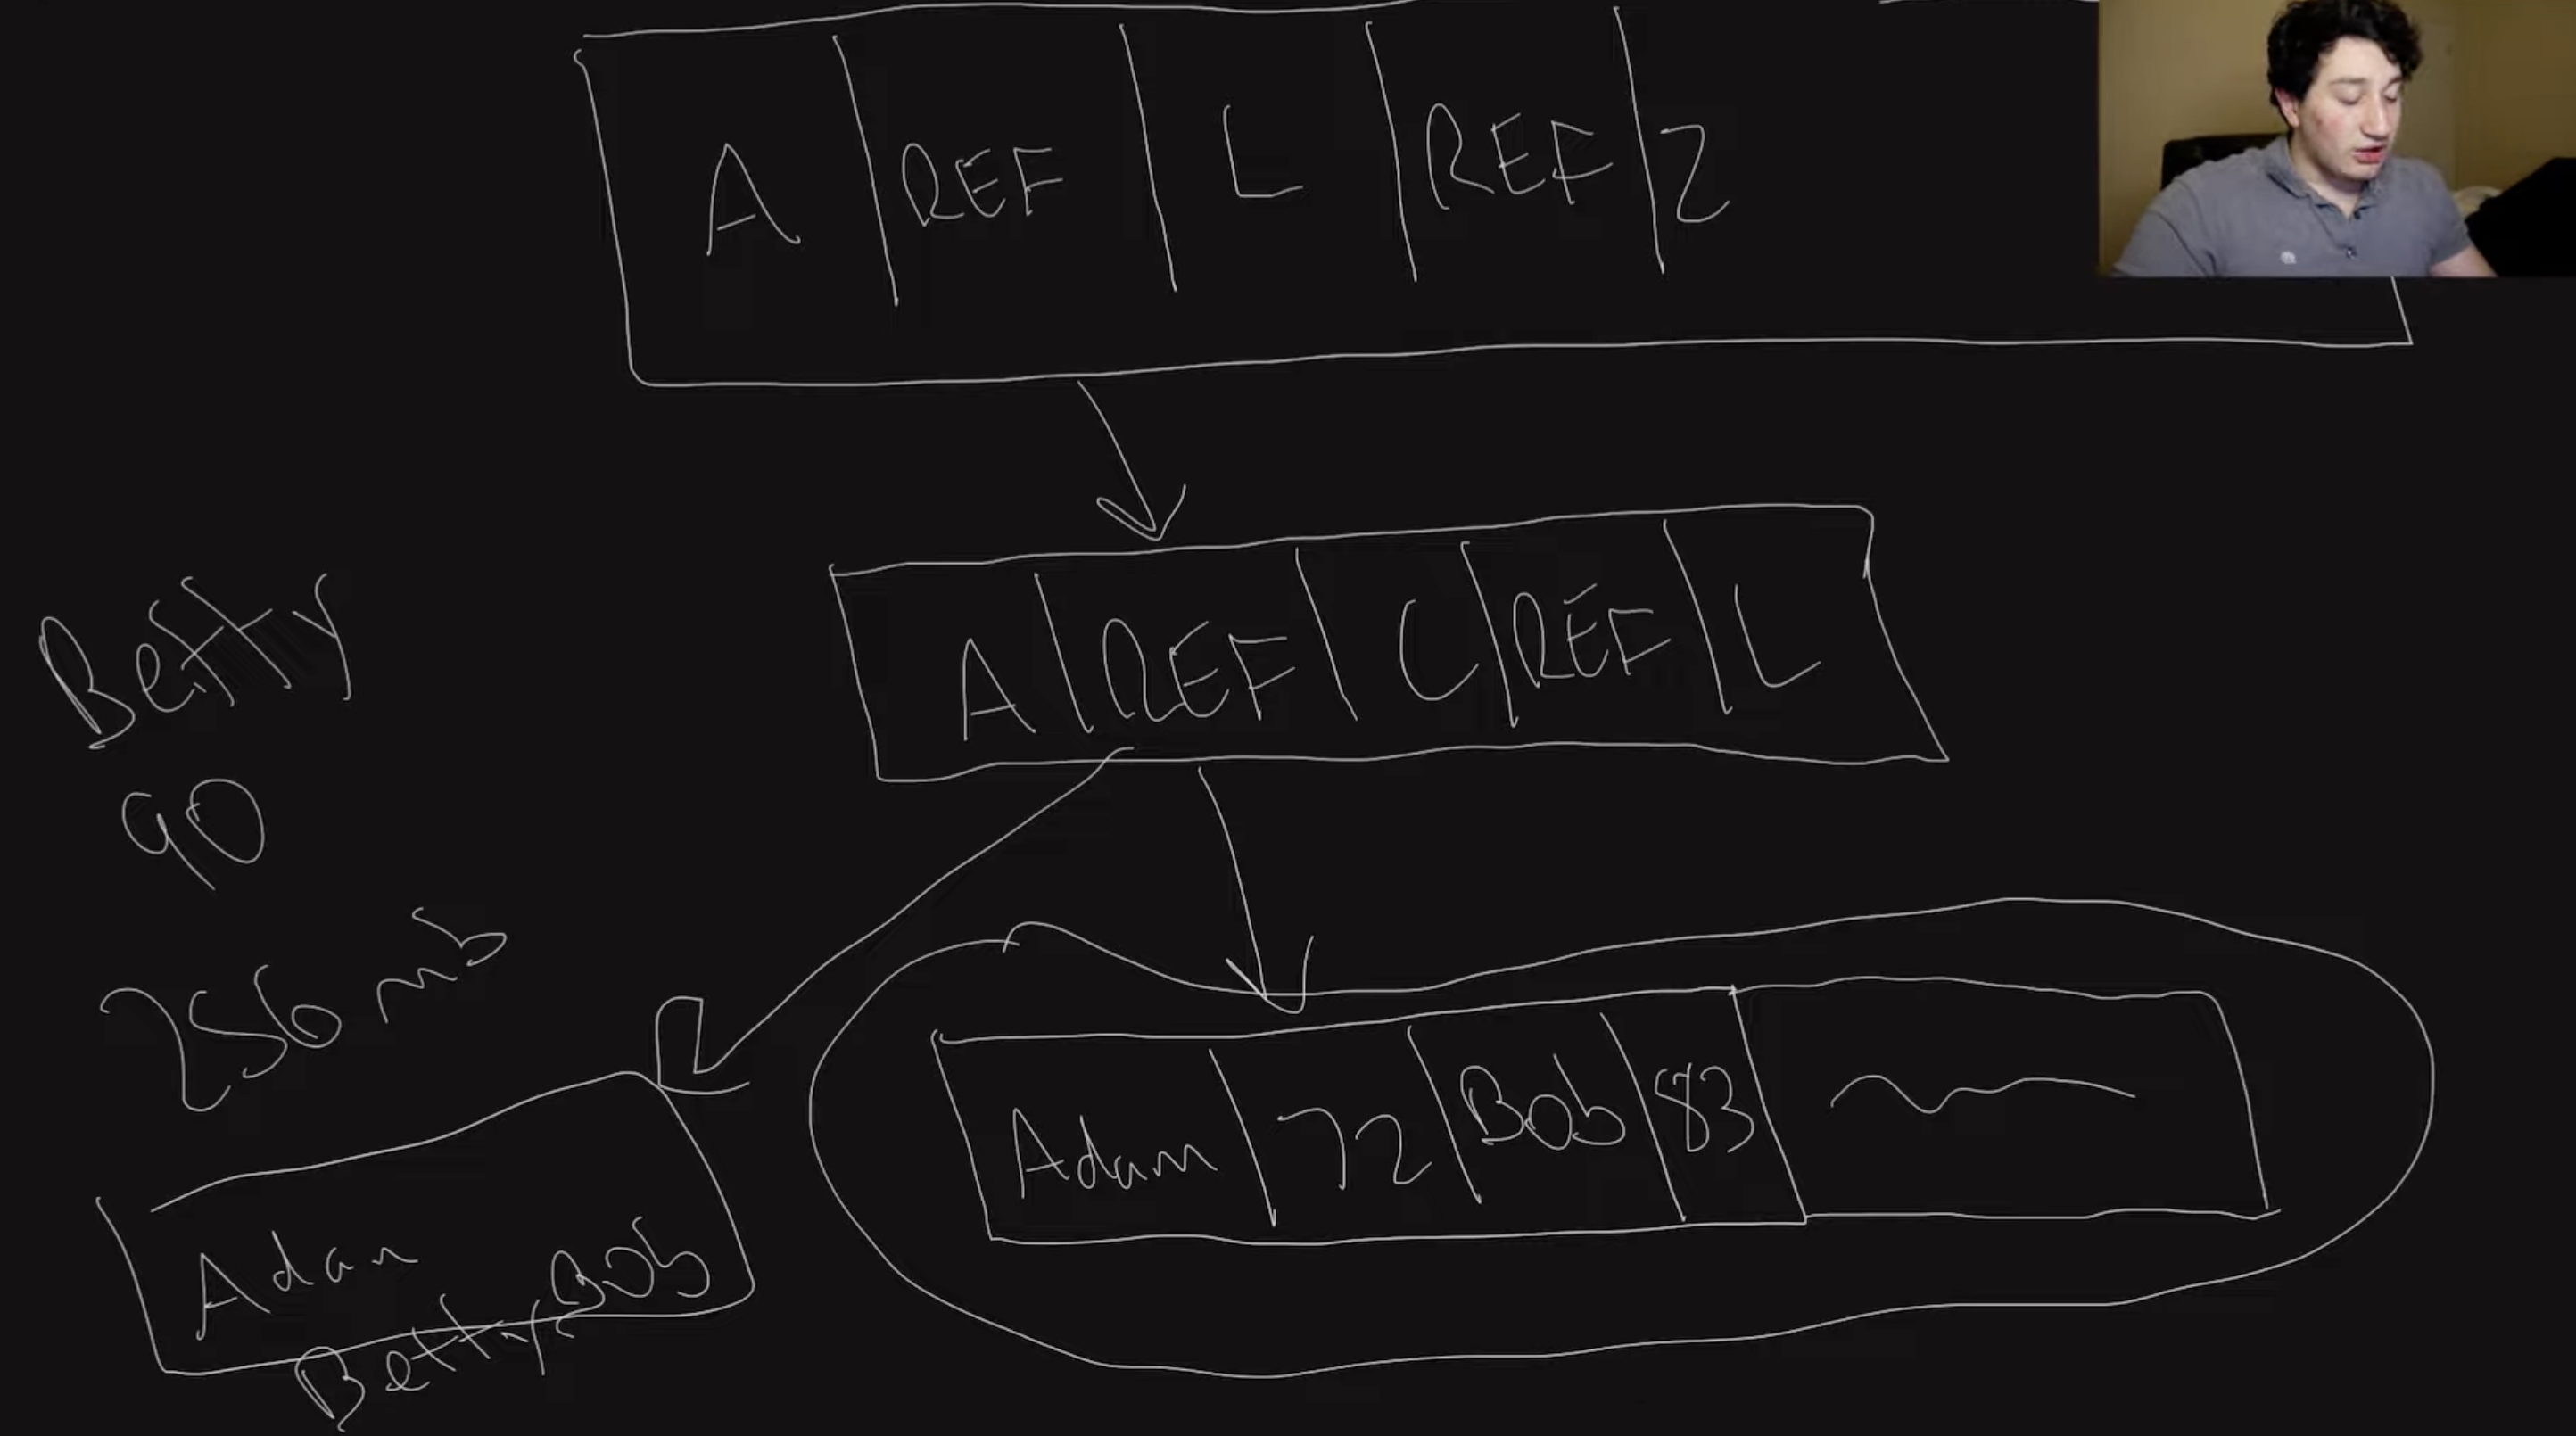 A REF L REF Z
A REF C REF L
Betty
90
256 mb
Adam 72 Bob 83
Adam
Betty Bob